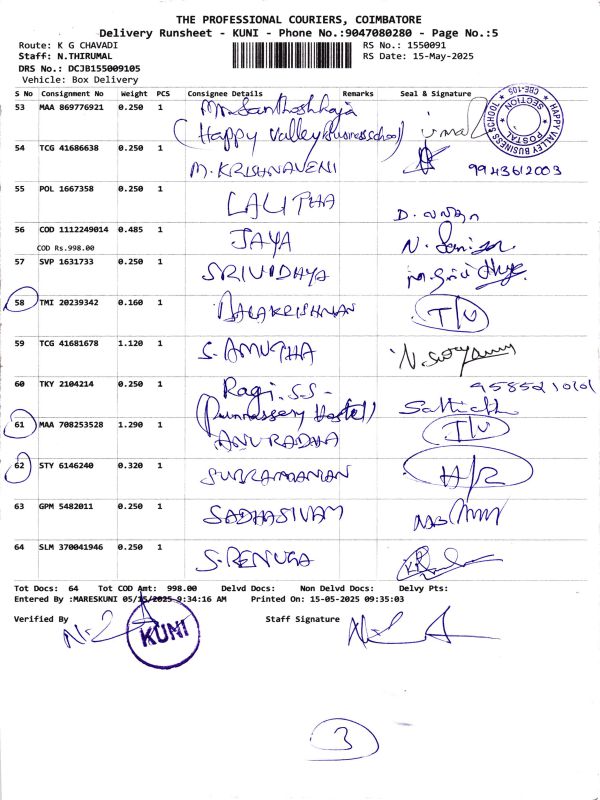 THE PROFESSIONAL COURIERS, COIMBATORE
Delivery Runsheet - KUNI - Phone No.:9047080280 - Page No.:5
Route: K G CHAVADI RS No.: 1550091
Staff: N.THIRUMAL RS Date: 15-May-2025
DRS No.: DCJB155009105
Vehicle: Box Delivery
S No Consignment No Weight PCS Consignee Details Remarks Seal & Signature
53 MAA 869776921 0.250 1 Mr. Santhoshkaja
(Happy Valley Business school)
HAPPY VALLEY BUSINESS SCHOOL
POSTAL SECTION
CBE-105
54 TCG 41686638 0.250 1 M. KRISHNAVENI 9943612003
55 POL 1667358 0.250 1 LALITHA
56 COD 1112249014 0.485 1 JAYA
COD Rs.998.00
57 SVP 1631733 0.250 1 SRIVIDHYA
58 TMI 20239342 0.160 1 BALAKRISHNAN I/U
59 TCG 41681678 1.120 1 S. AMUTHA
60 TKY 2104214 0.250 1 Ragi. S.S - 9585521010
(Punnassery Hostel)
61 MAA 708253528 1.290 1 ANURADHA I/U
62 STY 6146240 0.320 1 SUBRAMANIAN H/R
63 GPM 5482011 0.250 1 SADHASIVAM
64 SLM 370041946 0.250 1 S. RENUGA
Tot Docs: 64 Tot COD Amt: 998.00 Delvd Docs: Non Delvd Docs: Delvy Pts:
Entered By :MARESKUNI 05/15/2025 9:34:16 AM Printed On: 15-05-2025 09:35:03
Verified By Staff Signature
KUNI
3